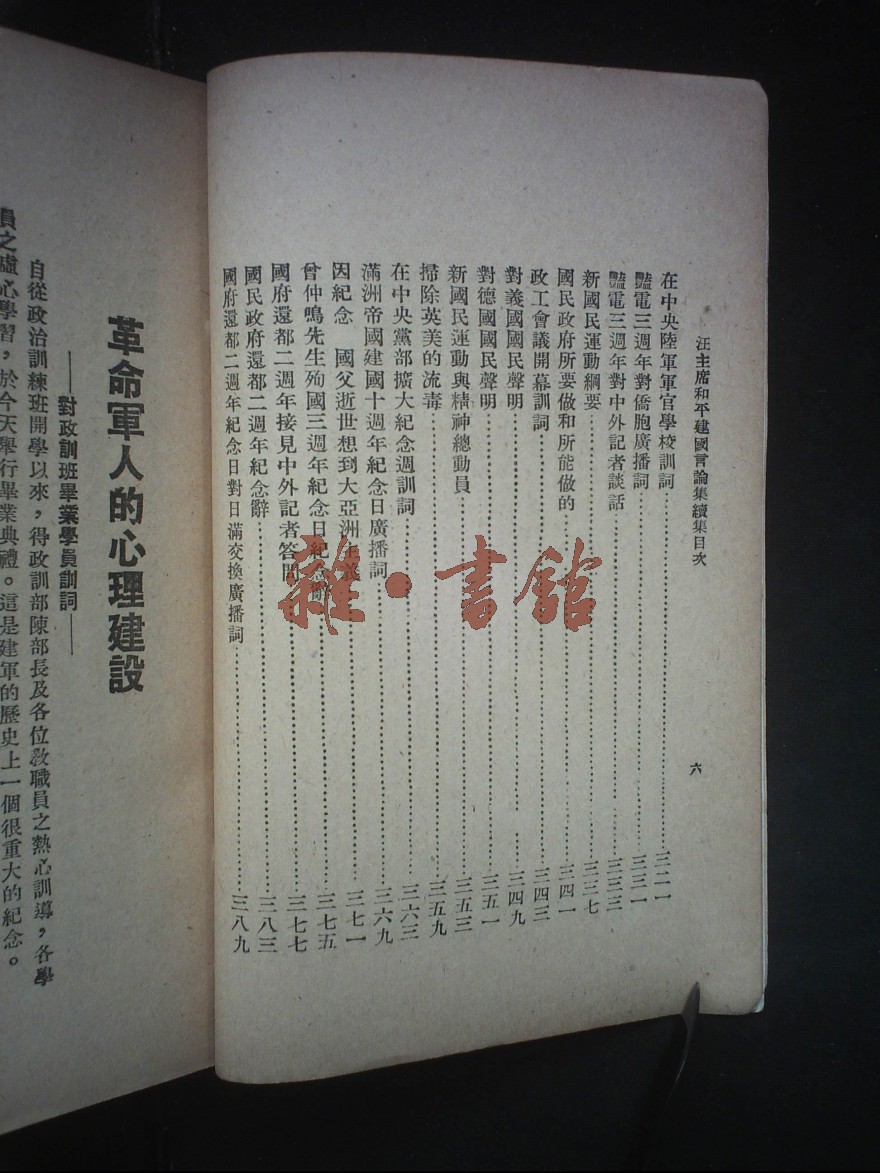 汪主席和平建國言論集續集目次
六
在中央陸軍軍官學校訓詞……三二一
豔電三週年對僑胞廣播詞……三三一
豔電三週年對中外記者談話……三三三
新國民運動綱要……三三七
國民政府所要做和所能做的……三四一
政工會議開幕訓詞……三四三
對義國國民聲明……三四九
對德國國民聲明……三五一
新國民運動與精神總動員……三五三
掃除英美的流毒……三五九
在中央黨部擴大紀念週訓詞……三六三
滿洲帝國建國十週年紀念日廣播詞……三六九
因紀念　國父逝世想到大亞洲主義……三七一
曾仲鳴先生殉國三週年紀念日紀念辭……三七五
國府還都二週年接見中外記者答問……三七七
國民政府還都二週年紀念辭……三八三
國府還都二週年紀念日對日滿交換廣播詞……三八九
雜·書館
革命軍人的心理建設
——對政訓班畢業學員訓詞——
自從政治訓練班開學以來，得政訓部陳部長及各位教職員之熱心訓導，各學
員之虛心學習，於今天舉行畢業典禮。這是建軍的歷史上一個很重大的紀念。